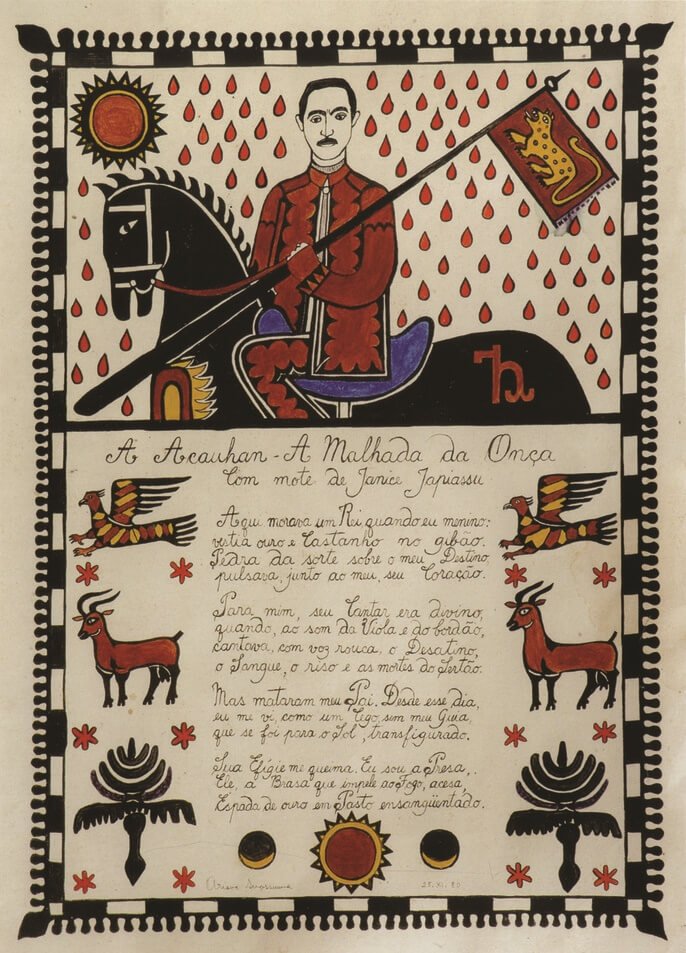 A Acauhan - A Malhada da Onça
Com mote de Janice Japiassu
Aqui morava um Rei, quando eu menino:
vestia ouro e Castanho no gibão.
Pedra da sorte sobre o meu Destino,
pulsava, junto ao meu, seu Coração.
Para mim, seu Cantar era divino,
quando, ao som da Viola e do bordão,
cantava, com voz rouca, o Desatino,
o Sangue, o riso e as mortes do Sertão.
Mas mataram meu Pai. Desde esse dia,
eu me vi, como um Cego, sem meu Guia,
que se foi para o Sol, transfigurado.
Sua Efígie me queima. Eu sou a Presa,
Ele, a Brasa que impele ao Fogo, acesa,
Espada de ouro em Pasto ensangüentado.
Ariano Suassuna 25.XI.80